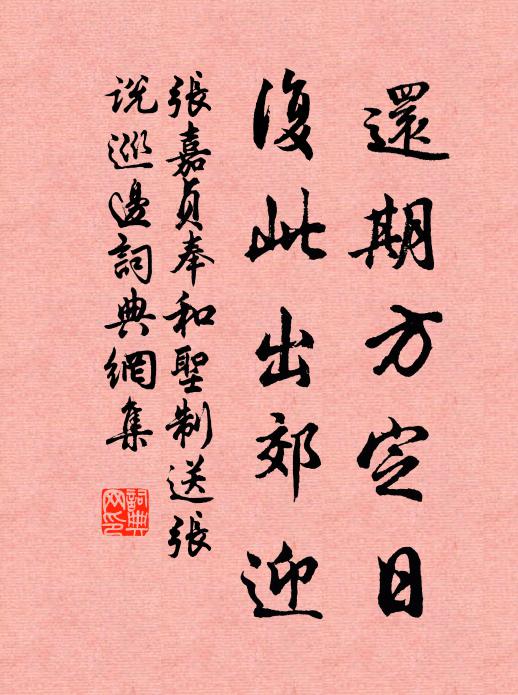 還期方定日
復此出郊迎
張嘉貞奉和聖制送張
說巡邊詞典網集
詞典
网印